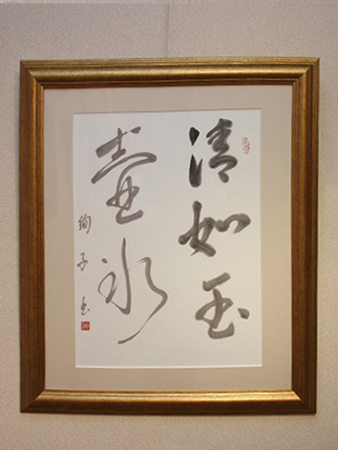 清如玉
壺氷
絢子書